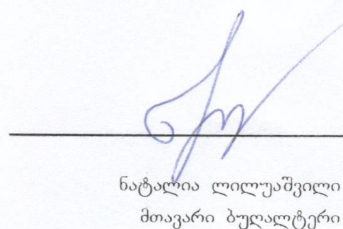 ნატალია ლილუაშვილი
მთავარი ბუღალტერი